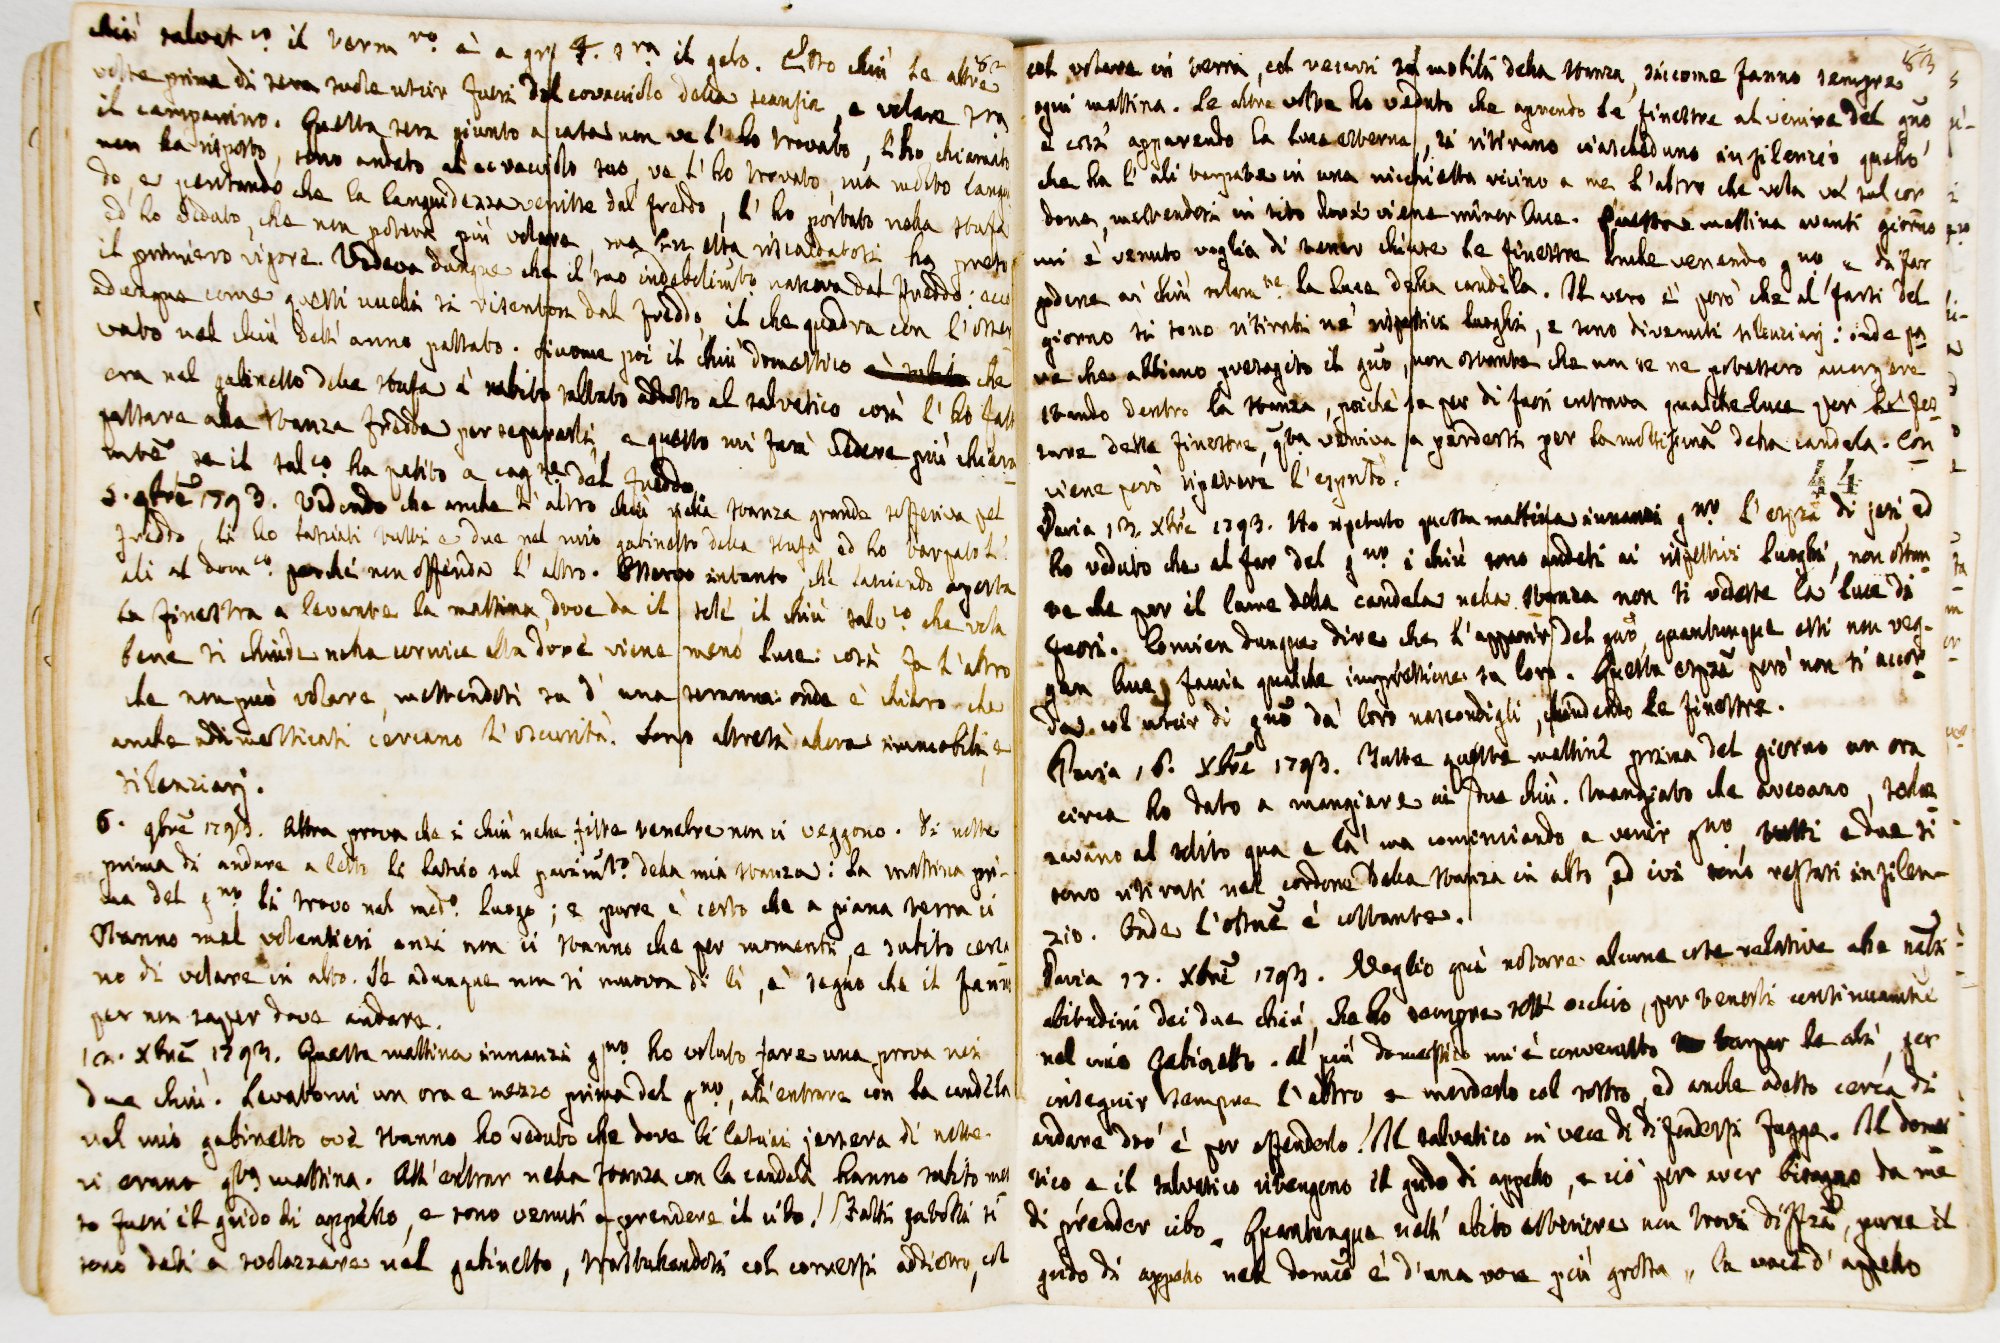 chiù salvat.co il term.ro è a gr. 4. sra il gelo. Esso chiù le altre
volte prima di sera suole uscir fuori dal covacciolo della scansia, e volare sra
il campanino. Questa sera giunto a casa non ve l'ho trovato, l'ho chiamato
non ha risposto, sono andato al covacciolo suo, ve l'ho trovato, ma molto langui
do, e pensando che la languidezza venisse dal freddo, l'ho portato nella stufa
ed ho veduto, che non poteva più volare, ma in essa riscaldatosi ha preso
il primiero vigore. Vedeva dunque che il suo indebolimto nasceva dal freddo: ecco
adunque come questi uccelli si risentono dal freddo, il che quadra con l'osser
vato nel chiù dell'anno passato. Siccome poi il chiù domestico che
era nel gabinetto della stufa è subito saltato addosso al salvatico così l'ho fatt
passare alla stanza fredda per separarli, e questo mi farà vedere più chiara
mte se il salco ha patito a cagne del freddo.
5. 9bre 1793. Vedendo che anche l'altro chiù nella stanza grande sofferiva pel
freddo, li ho lasciati tutti e due nel mio gabinetto della stufa ed ho tarpato l'
ali al domco perchè non offenda l'altro. Osservo intanto, che lasciando aperta
la finestra a levante la mattina, dove dà il sole il chiù salvco che vola
bene si chiude nella cornice alta dove viene meno luce: così fa l'altro
che non può volare, mettendosi su d'una scranna: onde è chiaro che
anche addimesticati cercano l'oscurità. Sono altresì allora immobili, e
silenziarj.
6. 9bre 1793. Altra prova che i chiù nelle fitte tenebre non ci veggono. Di notte
prima di andare a letto li lascio sul pavimto della mia stanza: la mattina pri-
ma del gno li trovo nel medo luogo; e pure è certo che a piana terra ci
stanno mal volentieri anzi non ci stanno che per momenti, e subito cerca
no di volare in alto. Se adunque non si muovon di lì, è segno che il fanno
per non saper dove andare.
12. Xbre 1793. Questa mattina innanzi gno ho voluto fare una prova nei
due chiù. Levatomi un ora e mezzo prima del gno, all'entrare con la candela
nel mio gabinetto ove stanno ho veduto che dove li lasciai jersera di notte
vi erano qta mattina. All'entrar nella stanza con la candela hanno subito mes
so fuori il grido di appello, e sono venuti a prendere il cibo. Fatti satolli si
sono dati a svolazzare nel gabinetto, trastullandosi col corrersi addietro, col
82
col volare in terra, col recarsi su mobili della stanza, siccome fanno sempre
ogni mattina. Le altre volte ho veduto che aprendo le finestre al venire del gno
e così apparendo la luce esterna, si ritirano ciascheduno in silenzio quello
che ha l'ali tarpate in una nicchietta vicino a me l'altro che vola va sul cor
done, mettendosi in sito dove viene minor luce. Questa mattina avanti giorno
mi è venuto voglia di tener chiuse le finestre anche venendo gno e di far
godere ai chiù solamte la luce della candela. Il vero è però che al farsi del
giorno si sono ritirati ne' rispettivi luoghi, e sono divenuti silenziarj: onde pa
re che abbiano presagito il gno, non ostante che non se ne potessero accorgere
stando dentro la stanza, poichè se per di fuori entrava qualche luce per le fes
sure delle finestre, qta veniva a perdersi per la moltissima della candela. Con
viene però ripetere l'esprito.
44
Pavia 13. Xbre 1793. Ho ripetuto questa mattina innanzi gno l'esprza di jeri, ed
ho veduto che al far del gno i chiù sono andati ai rispettivi luoghi, non ostan
te che per il lume della candela nella stanza non si vedesse la luce di
fuori. Convien dunque dire che l'apparir del gno, quantunque essi non veg-
gan luce, faccia qualche impressione su loro. Questa esprza però non si accor
da col uscir di gno da' loro nascondigli, chiudendo le finestre.
Pavia 16. Xbre 1793. Tutte queste mattine prima del giorno un ora
circa ho dato a mangiare ai due chiù. Mangiato che avevano, svolaz
zavano al solito qua e là, ma cominciando a venir gno, tutti e due si
sono ritirati nel cordone della stanza in alto, ed ivi sono restati in silen-
zio. Onde l'ossne è costante.
Pavia 17. Xbre 1793. Voglio qui notare alcune cose relative alle natli
abitudini dei due chiù, che ho sempre sott'occhio, per tenerli continuamte
nel mio gabinetto. Al più domestico mi è convenuto tarpar le ali, per
inseguir sempre l'altro e morderlo col rostro, ed anche adesso cerca di
andare dro e per offenderlo. Il salvatico in vece di difendersi fugge. Il domes
tico e il salvatico ritengono il grido di appello, e ciò per aver bisogno da me
di prender cibo. Quantunque nell'abito esteriore non trovi diffza, pure il
grido di appello nel domco è d'una voce più grossa, la voce d'appello
83